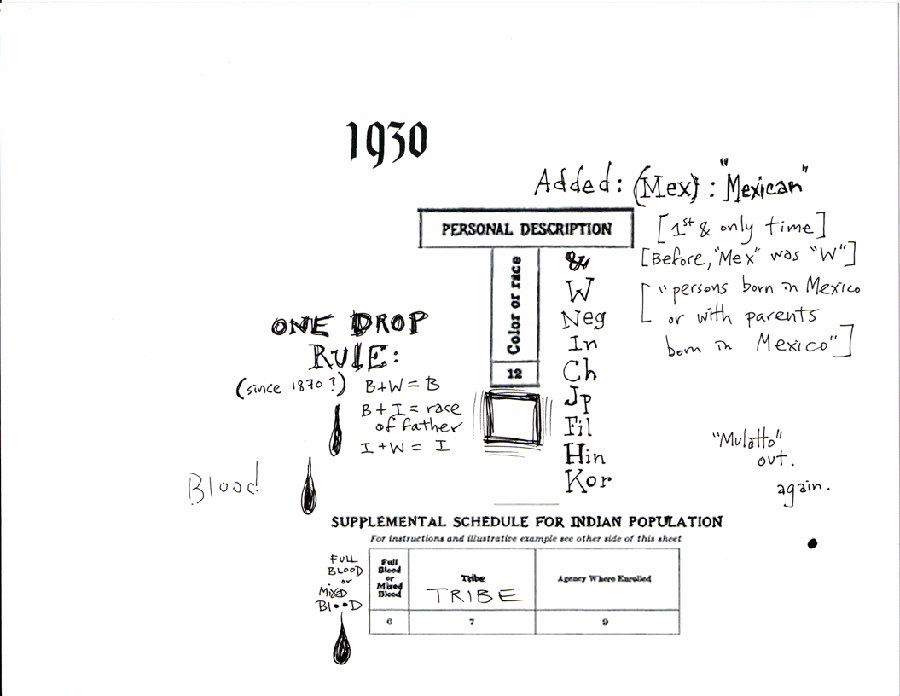 1930
Added: (Mex) : "Mexican"
[1st & only time]
[Before, "Mex" was "W"]
["persons born in Mexico
or with parents
born in Mexico"]
PERSONAL DESCRIPTION
Color or race
12
W
Neg
In
Ch
Jp
Fil
Hin
Kor
ONE DROP
RULE:
(since 1870?)
B+W = B
B+I = race
of father
I+W = I
Blood
"Mulatto"
out.
again.
SUPPLEMENTAL SCHEDULE FOR INDIAN POPULATION
For instructions and illustrative example see other side of this sheet
FULL
BLOOD
or
MIXED
BLOOD
Full
Blood
or
Mixed
Blood
6
Tribe
TRIBE
7
Agency Where Enrolled
9